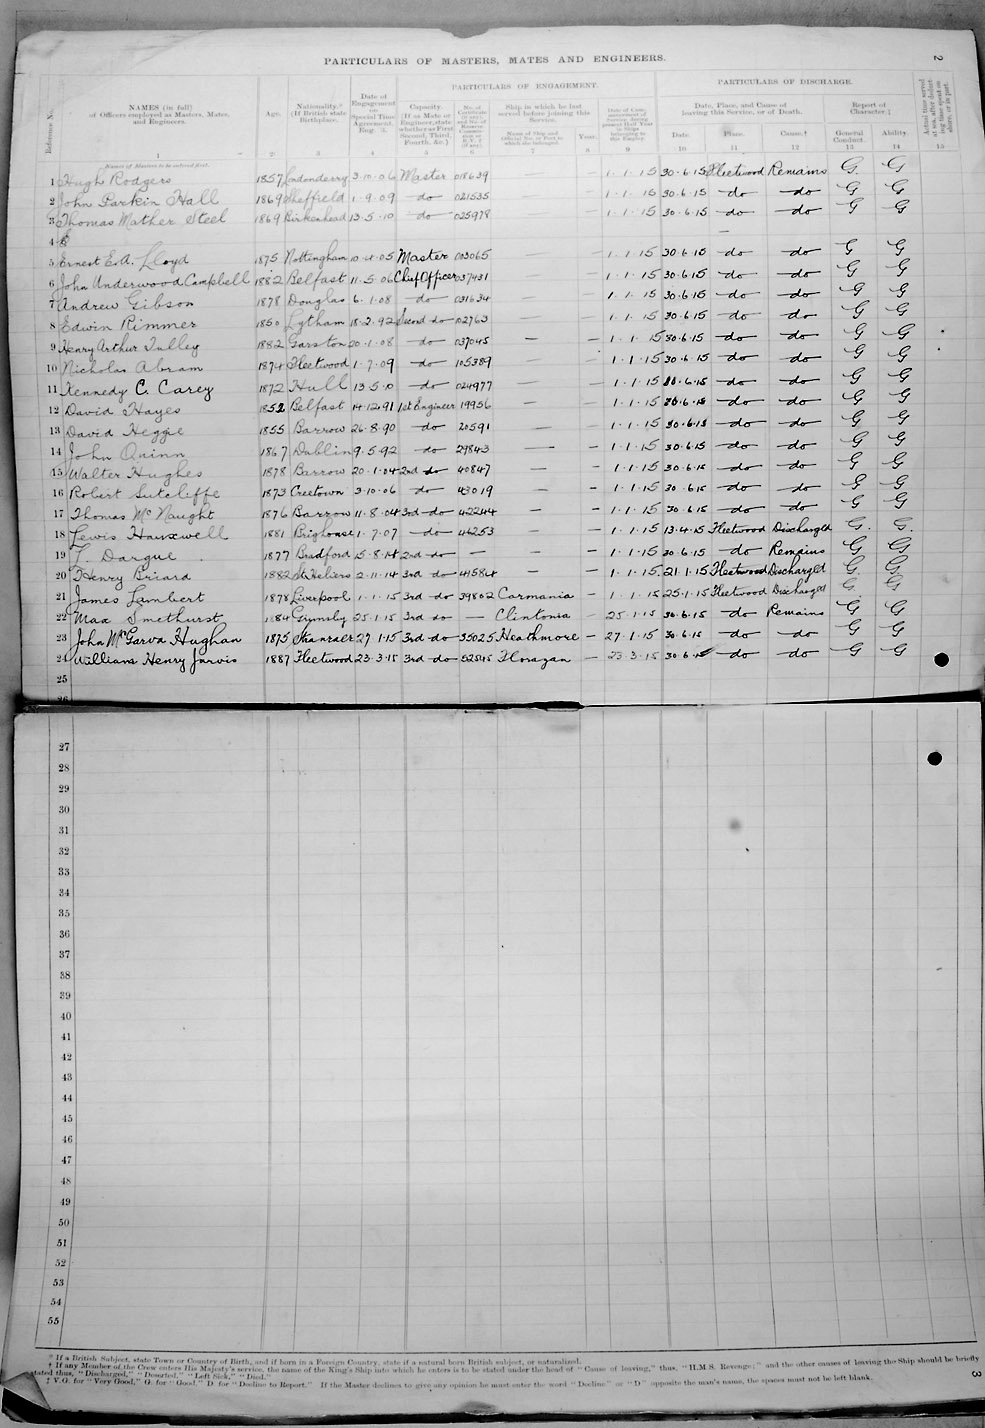 2
PARTICULARS OF MASTERS, MATES AND ENGINEERS.
PARTICULARS OF ENGAGEMENT. PARTICULARS OF DISCHARGE.
Reference No. NAMES (in full) of Officers employed as Masters, Mates, and Engineers. Age. Nationality.* (If British state Birthplace.) Date of Engagement on Special Time Agreement, Eng. 3. Capacity. (If as Mate or Engineer, state whether as First Second, Third, Fourth, &c.) Ship in which he last served before joining this Service. Name of Ship and Official No. or Port to which she belonged. Year. Date, Place, and Cause of leaving this Service, or of Death. Date. Place. Cause.† Report of Character.‡ General Conduct. Ability.
1 2 3 4 5 6 7 8 9 10 11 12 13 14 15
Names of Masters to be entered first.
1 Hugh Rodgers 1857 Londonderry 3.10.06 Master 018639 — — 1.1.15 30.6.15 Fleetwood Remains G. G
2 John Parkin Hall 1869 Sheffield 1.9.09 do 021535 — — 1.1.15 30.6.15 do do G G
3 Thomas Mather Steel 1869 Birkenhead 13.5.10 do 025978 — — 1.1.15 30.6.15 do do G G
4 E —
5 Ernest E.A. Lloyd 1875 Nottingham 10.4.05 Master 003065 — — 1.1.15 30.6.15 do do G G
6 John Underwood Campbell 1882 Belfast 11.5.06 Chief Officer 037431 — — 1.1.15 30.6.15 do do G G
7 Andrew Gibson 1878 Douglas 6.1.08 do 031634 — — 1.1.15 30.6.15 do do G G
8 Edwin Rimmer 1850 Lytham 18.2.92 Second do 02763 — — 1.1.15 30.6.15 do do G G
9 Henry Arthur Tulley 1882 Garston 20.1.08 do 037045 — — 1.1.15 30.6.15 do do G G
10 Nicholas Abram 1874 Fleetwood 1.7.09 do 105389 — — 1.1.15 30.6.15 do do G G
11 Kennedy C. Carey 1872 Hull 13.5.10 do 024977 — — 1.1.15 30.6.15 do do G G
12 David Hayes 1852 Belfast 14.12.91 1st Engineer 19956 — — 1.1.15 30.6.15 do do G G
13 David Heggie 1855 Barrow 26.8.90 do 20591 — — 1.1.15 30.6.15 do do G G
14 John Quinn 1867 Dublin 9.5.92 do 29843 — — 1.1.15 30.6.15 do do G G
15 Walter Hughes 1878 Barrow 20.1.04 2nd do 40847 — — 1.1.15 30.6.15 do do G G
16 Robert Sutcliffe 1873 Creetown 3.10.06 do 43019 — — 1.1.15 30.6.15 do do G G
17 Thomas McNaught 1876 Barrow 11.8.04 3rd do 42244 — — 1.1.15 30.6.15 do do G G
18 Lewis Hauxwell 1881 Brighouse 1.7.07 do 46253 — — 1.1.15 13.4.15 Fleetwood Discharged G. G.
19 T. Dargue 1877 Bradford 15.8.14 2nd do — — — 1.1.15 30.6.15 do Remains G G
20 Henry Briard 1882 St Heliers 2.11.14 3rd do 41584 — — 1.1.15 21.1.15 Fleetwood Discharged G G
21 James Lambert 1878 Liverpool 1.1.15 3rd do 39802 Carmania — 1.1.15 25.1.15 Fleetwood Discharged G. G
22 Max Smethurst 1884 Grimsby 25.1.15 3rd do — Clintonia — 25.1.15 30.6.15 do Remains G G
23 John McGarva Hughan 1875 Stanraer 27.1.15 3rd do 35025 Heathmore — 27.1.15 30.6.15 do do G G
24 William Henry Jarvis 1887 Fleetwood 23.3.15 3rd do 52515 Florazan — 23.3.15 30.6.15 do do G G
25
26
27
28
29
30
31
32
33
34
35
36
37
38
39
40
41
42
43
44
45
46
47
48
49
50
51
52
53
54
55
* If a British Subject, state Town or Country of Birth, and if born in a Foreign Country, state if a natural born British subject, or naturalized.
† If any Member of the Crew enters His Majesty's service, the name of the King's Ship into which he enters is to be stated under the head of "Cause of leaving," thus, "H.M.S. Revenge;" and the other causes of leaving the Ship should be briefly
stated thus, "Discharged," "Deserted," "Left Sick," "Died."
‡ V.G. for "Very Good," G. for "Good," D. for "Decline to Report." If the Master declines to give any opinion he must enter the word "Decline" or "D" opposite the man's name, the spaces must not be left blank.
3